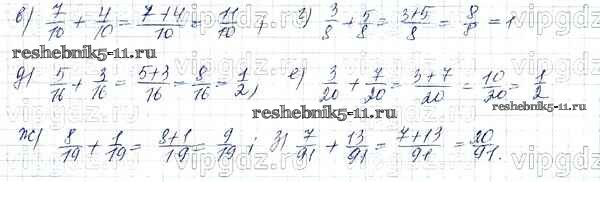 в) 7/10 + 4/10 = 7+4/10 = 11/10 , г) 3/8 + 5/8 = 3+5/8 = 8/8 = 1
reshebnik5-11.ru
д) 5/16 + 3/16 = 5+3/16 = 8/16 = 1/2, е) 3/20 + 7/20 = 3+7/20 = 10/20 = 1/2
reshebnik5-11.ru
reshebnik5-11.ru
ж) 8/19 + 1/19 = 8+1/19 = 9/19 ; з) 7/91 + 13/91 = 7+13/91 = 20/91.